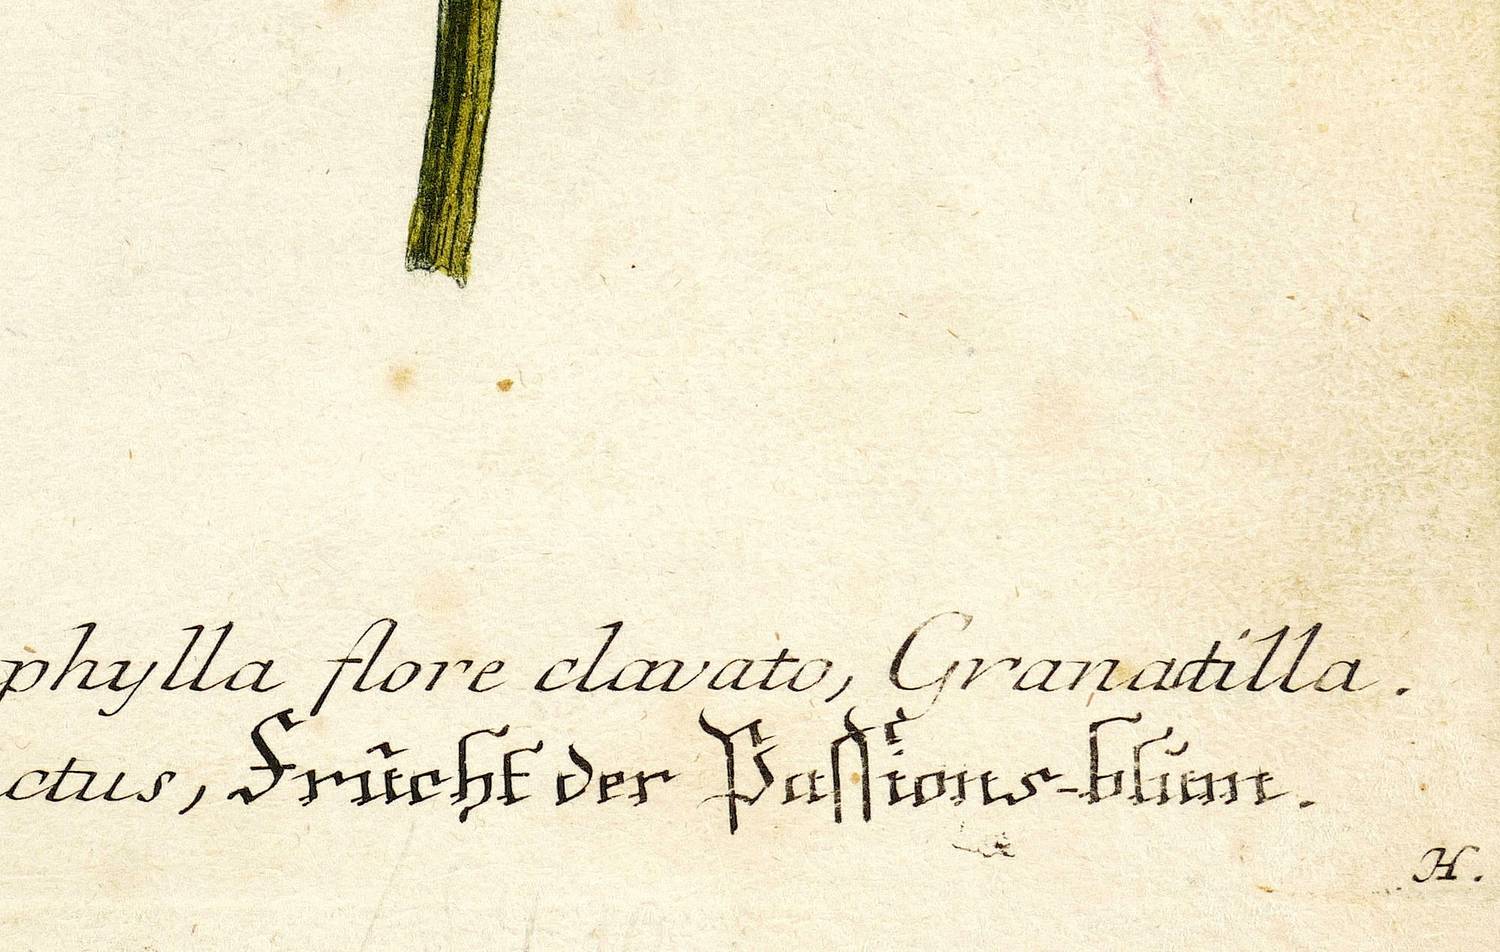 phylla flore clavato, Granadilla.
ctus, Frucht der Paſſions-blum.
H.